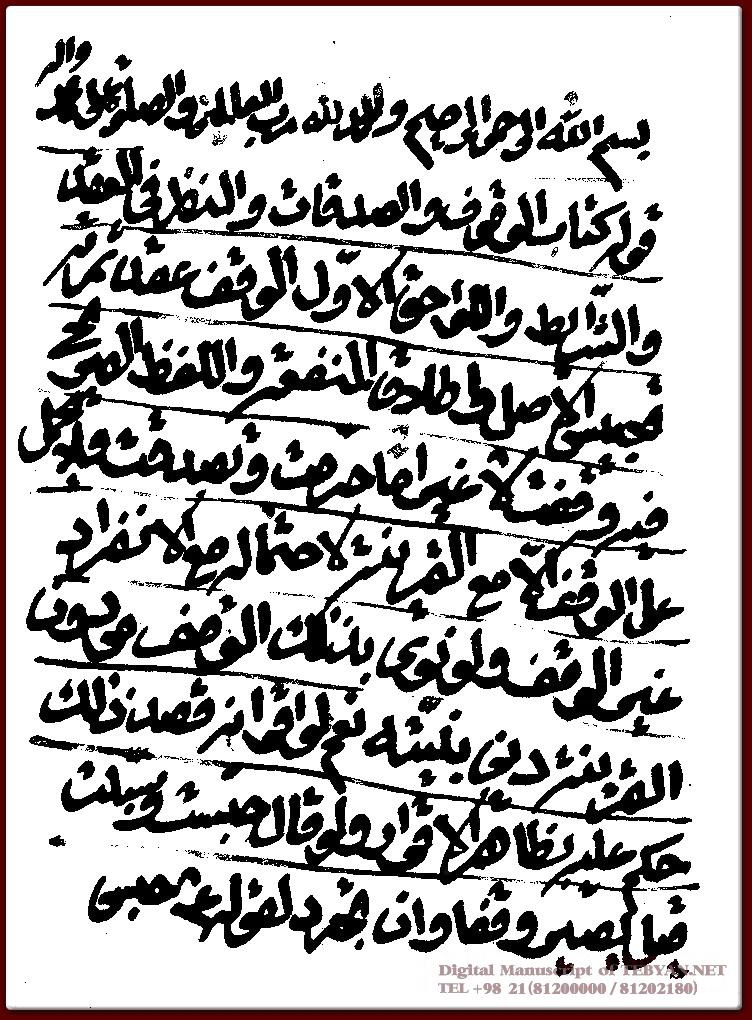 واله
بسم الله الرحمن الرحيم والحمد لله رب العالمين والصلوة على محمد
قوله كتاب الوقوف والصدقات والنظر في العقد
والشرايط واللواحق الاول الوقف عقد ثمرته
تحبيس الاصل واطلاق المنفعة واللفظ الصريح
فيه وقفت لا غير اما حرمت وتصدقت فلا يحمل
على الوقف الا مع القرينة لاحتماله مع الانفراد
غير الوقف ولو نوى بذلك الوقف من دون
القرينة دين بنيته نعم لو اقر انه قصد ذلك
حكم عليه بظاهر الاقرار ولو قال حبست وسبلت
قيل يصير وقفا وان تجرد لقوله ع حبس
Digital Manuscript of TEBYAN.NET
TEL +98 21 (81200000 / 81202180)